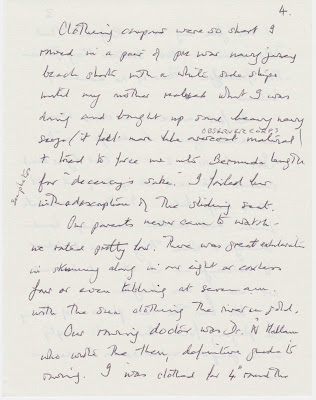 4.
Clothing coupons were so short I
rowed in a pair of pre war navy jersey
beach shorts with a white side stripe
until my mother realised what I was
doing and bought up some heavy navy
OBSERVER CORPS
serge (it felt more like overcoat material)
& tried to force me into Bermuda length
for "decency's sake". I foiled her
with a description of the sliding seat.
see photos
Our parents never came to watch -
we rated pretty low. There was great exhilaration
in skimming along in our eight or coxless
four or even tubbing at seven am.
with the sun clothing the river in gold.
Our rowing doctor was Dr. Hallam
who wrote the then definitive guide to
rowing. I was clothed for 4" round the